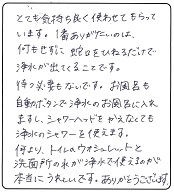 とても気持ち良く使わせてもらって
います。1番ありがたいのは、
何もせずに蛇口をひねるだけで
浄水が出てくることです。
待つ必要もないです。お風呂も
自動ボタンで浄水のお風呂に入れ
ますし、シャワーヘッドをかえなくても
浄水のシャワーを使えます。
何より、トイレのウォシュレットと
洗面所の水が浄水で使えるのが
本当にうれしいです。ありがとうございます。